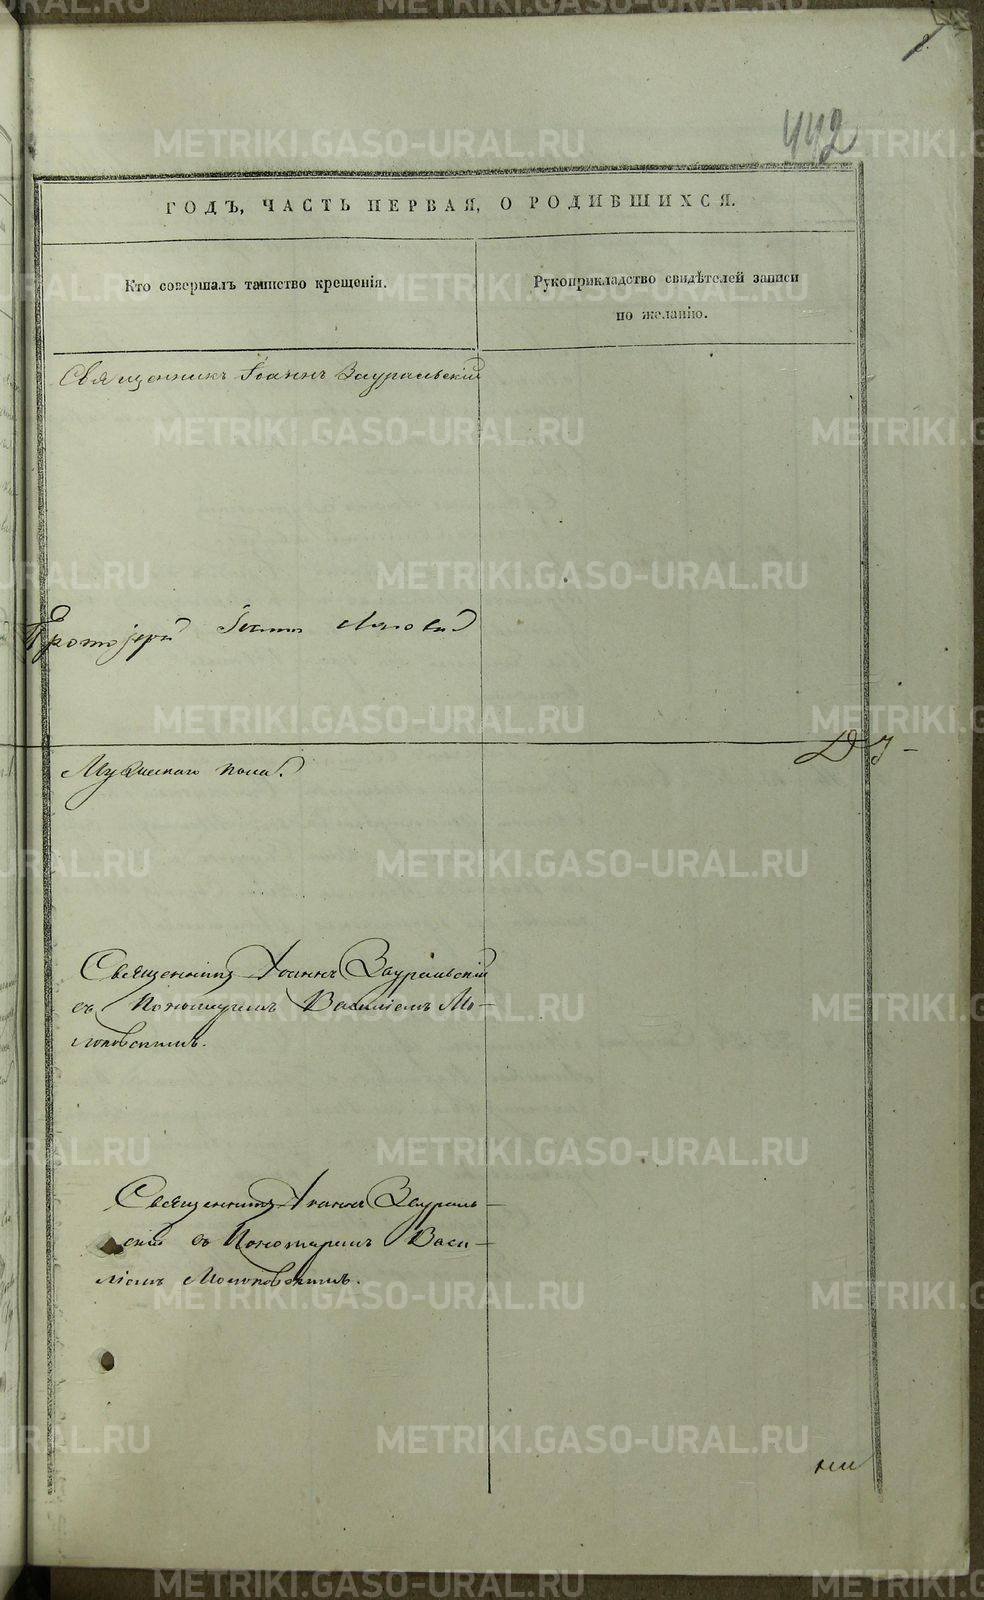 442
ГОДЪ, ЧАСТЬ ПЕРВАЯ, О РОДИВШИХСЯ.
Кто совершалъ таинство крещенія.
Рукоприкладство свидѣтелей записи
по желанію.
Священникъ Іоаннъ Зауральскій
Протоіерей Іоаннъ
Мужескаго пола.
Священникъ Іоаннъ Зауральскій
съ Пономаремъ Василіемъ Мо-
локовскимъ.
Священникъ ІоаннъЗаураль-
скій съ Пономаремъ Васи-
ліемъ Молоковскимъ.
METRIKI.GASO-URAL.RU